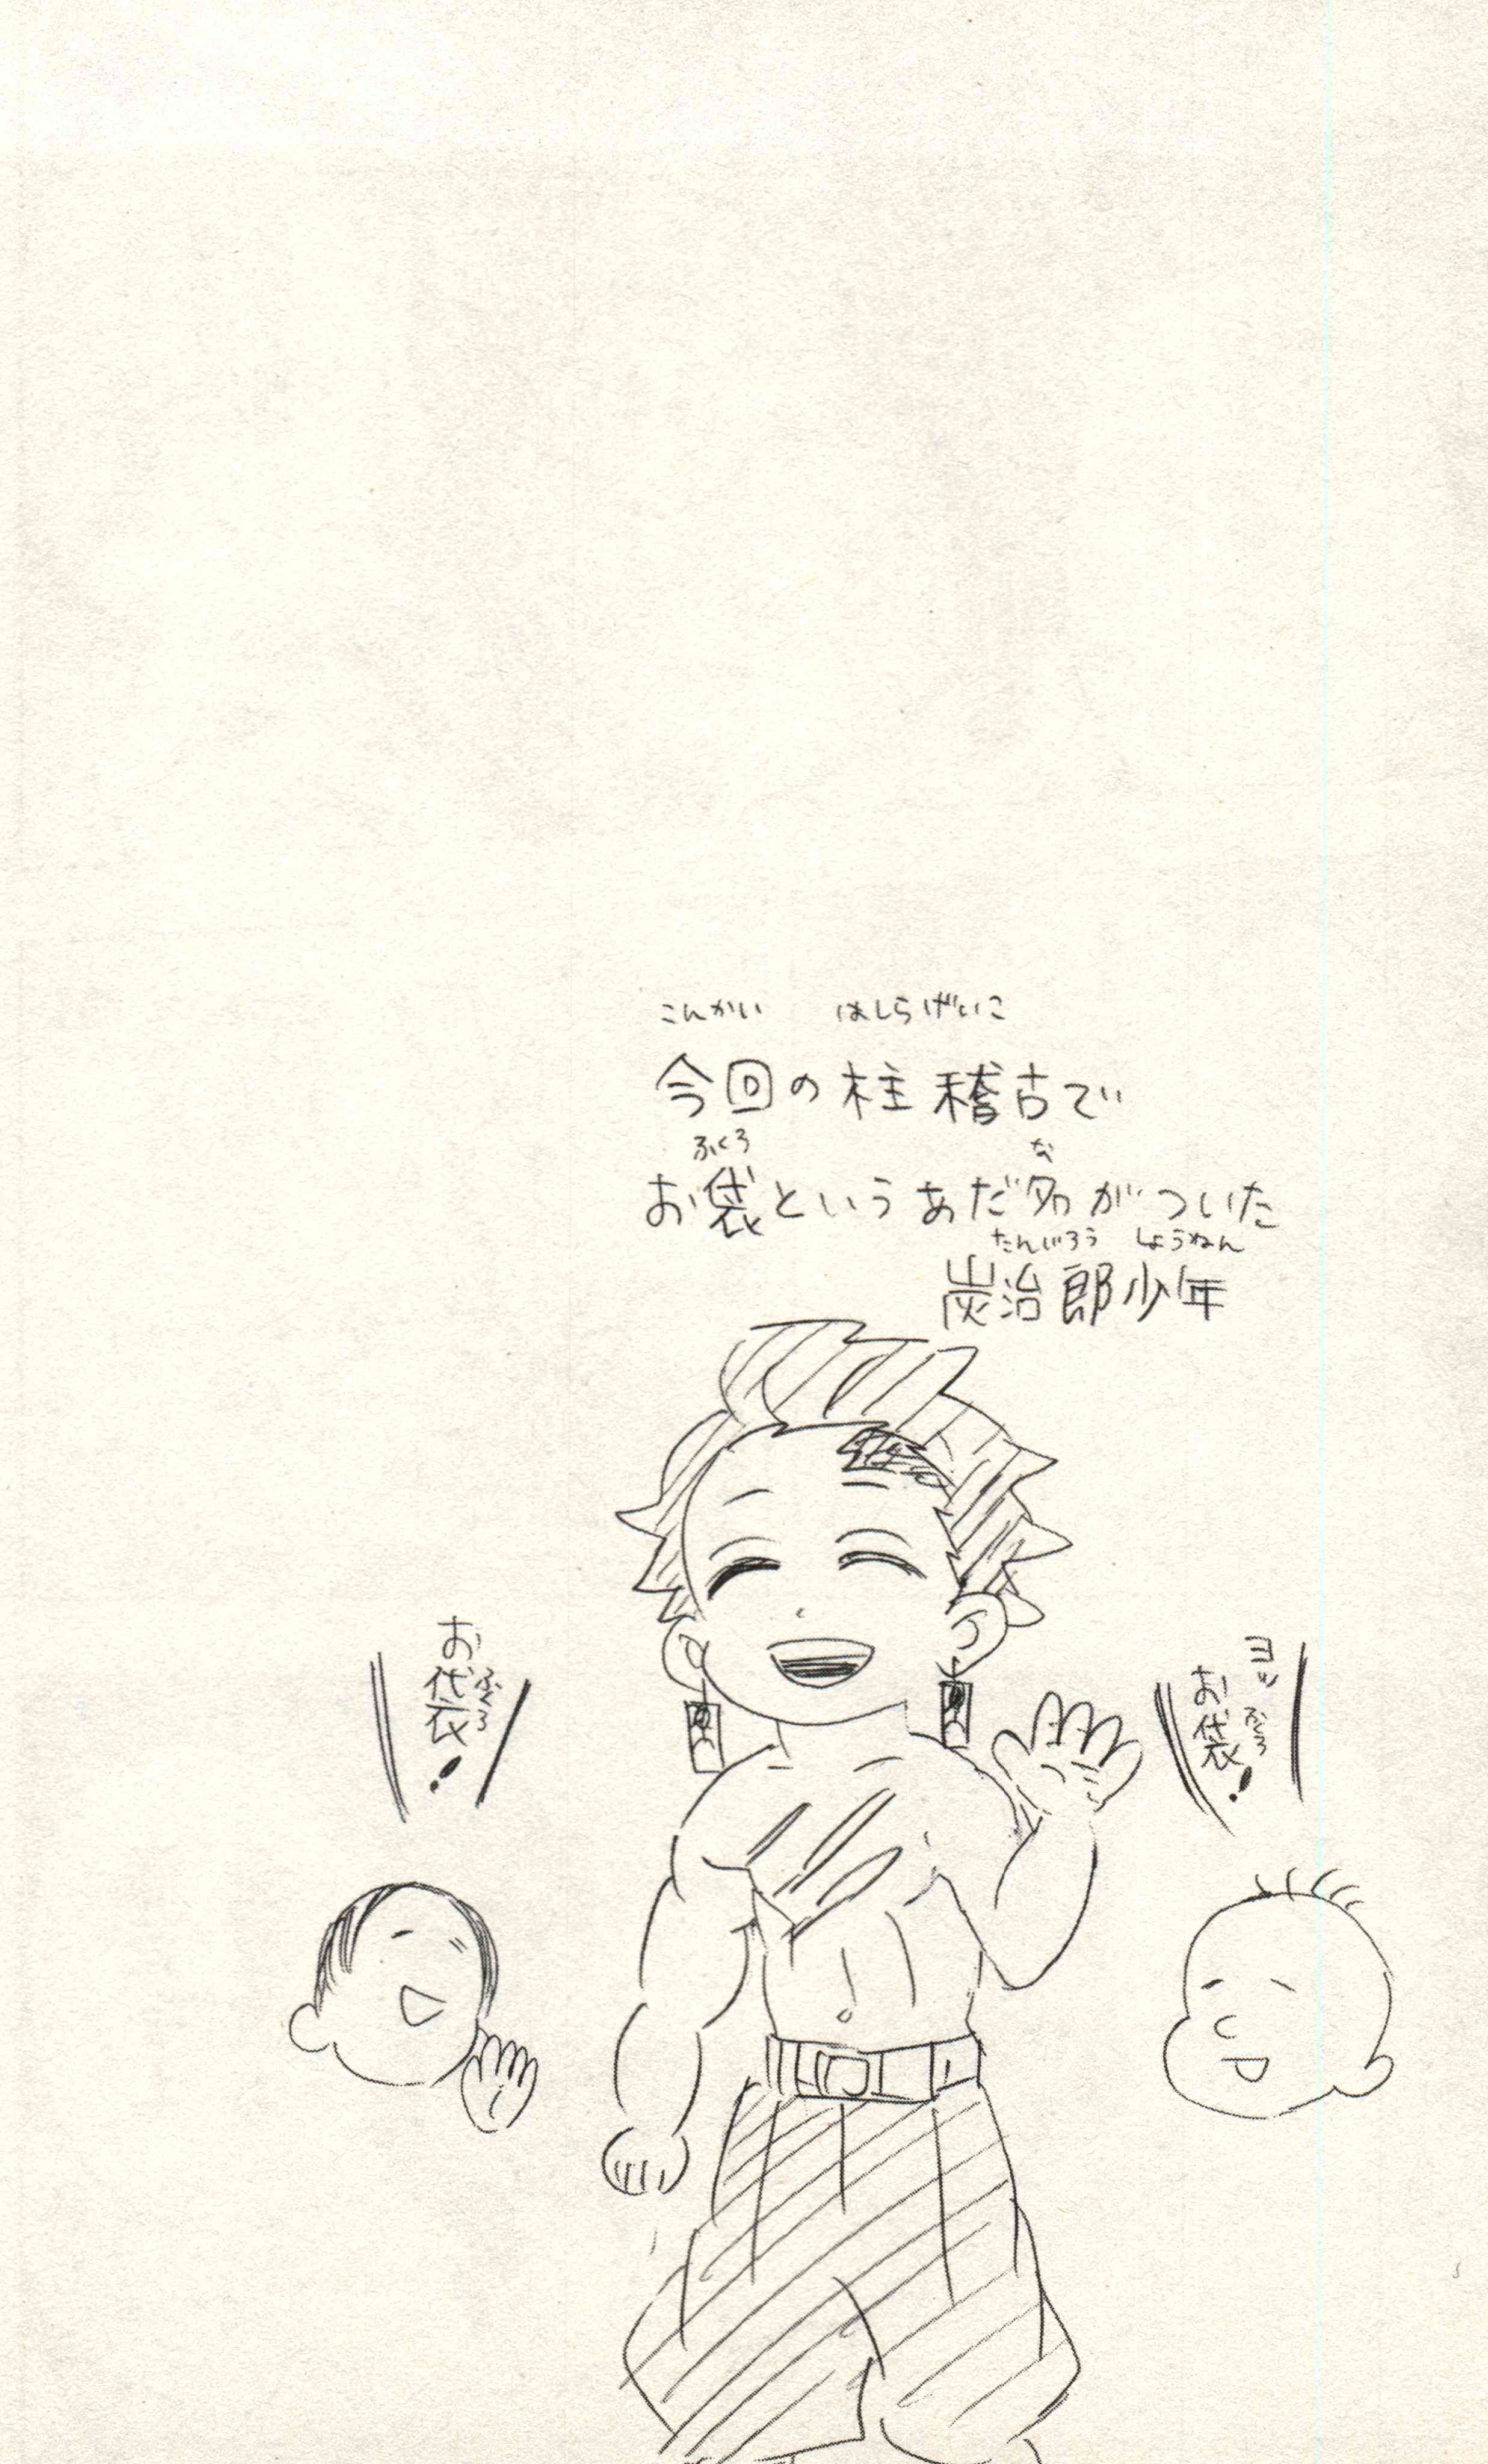 こんかい はしらげいこ
今回の柱稽古で
ふくろ な
お袋というあだ名がついた
たんじろう しょうねん
炭治郎少年
ヨッ
お袋!
ふくろ
お袋!
ふくろ